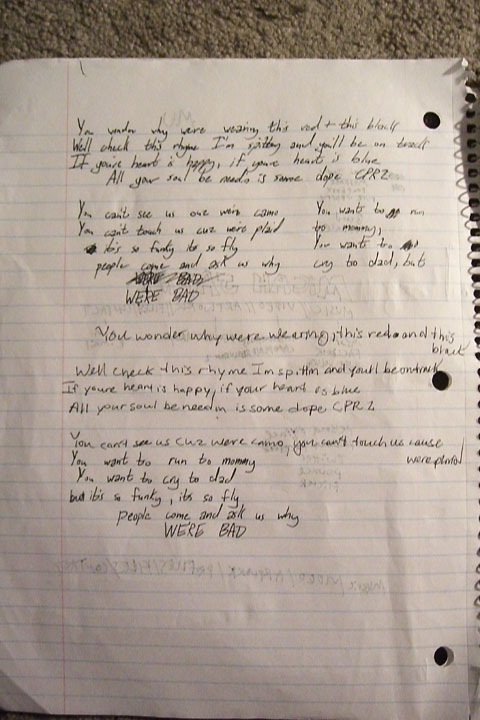 You wonder why were wearing this red + this black
Well check this rhyme I'm spittin and you'll be on track
If you're heart is happy, if youre hearts is blue
All your soul be needs is some dope CPR2
You can't see us cuz were camo
You can't touch us cuz were plaid
its so funky its so fly
people come and ask us why
WERE BAD
WERE BAD
You want to run
to mommy,
You want to
cry to dad, but
You wonder why were wearing, this red and this
black
Well check this rhyme Im spittin and youll be ontrack
If youre heart is happy, if your heart is blue
All your soul be needin is some dope CPR2
You can't see us cuz were camo, you can't touch us cause
were plaid
You want to run to mommy
You want to cry to dad
but its so funky, its so fly
people come and ask us why
WERE BAD